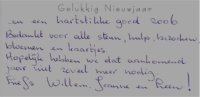 Gelukkig Nieuwjaar
en een hartstikke goed 2006
Bedankt voor alle steun, hulp, bezoeken,
bloemen en kaartjes.
Hopelijk hebben we dat aankomend
jaar niet zoveel meer nodig.
Liefs Willem en !